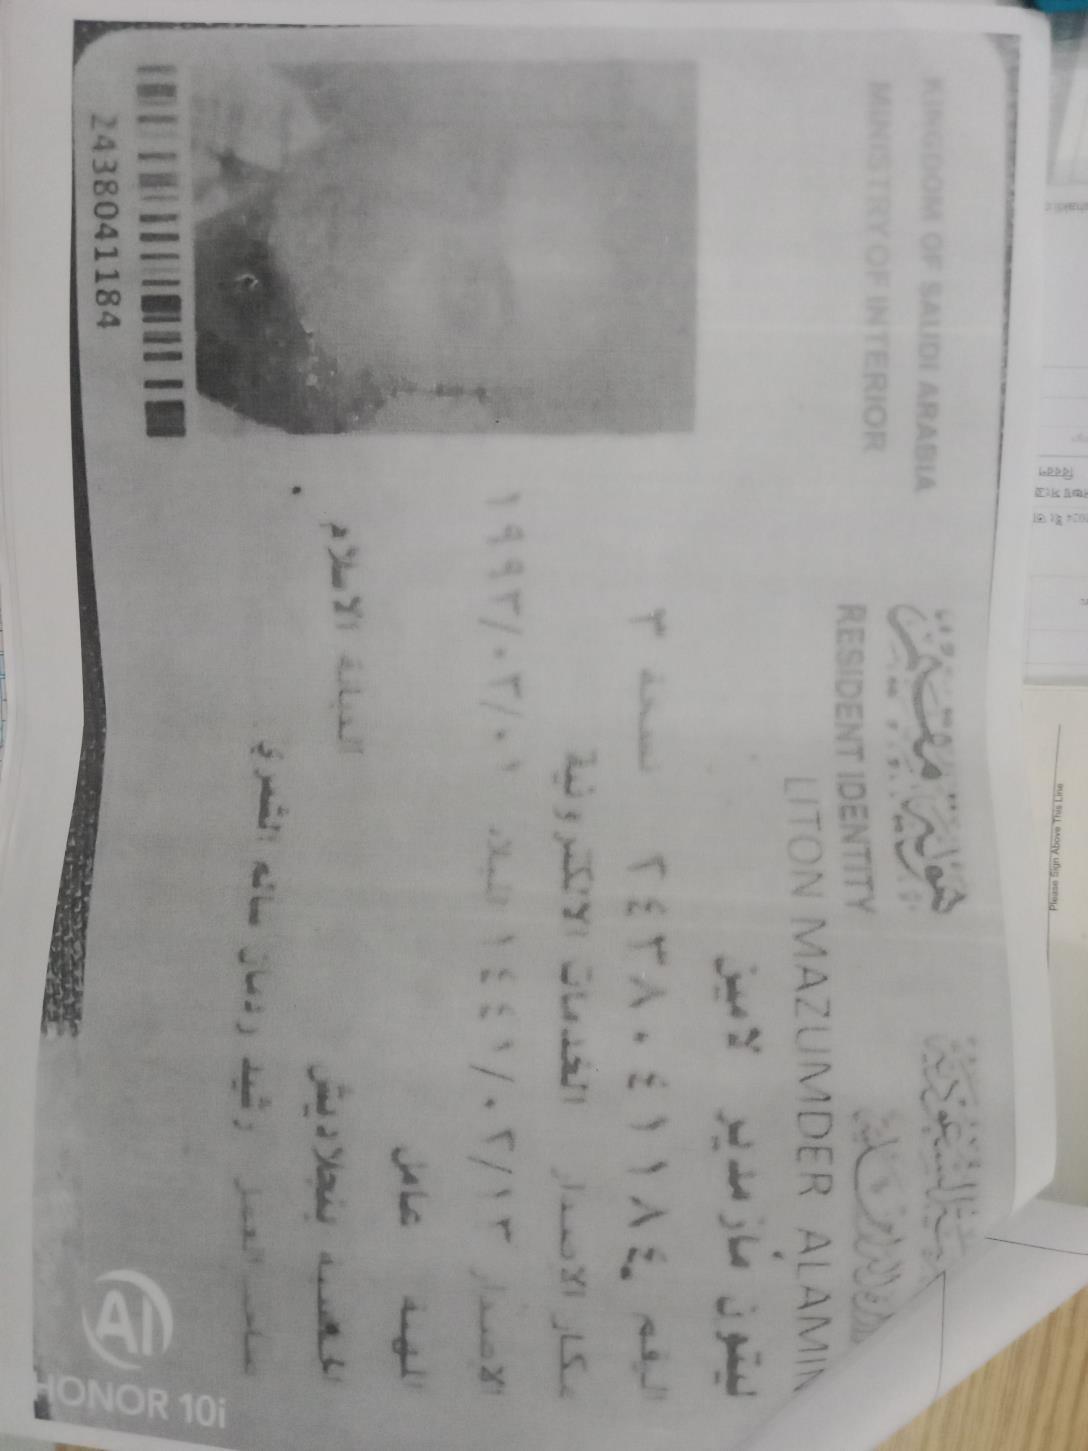 KINGDOM OF SAUDI ARABIA
MINISTRY OF INTERIOR
هوية مقيم
RESIDENT IDENTITY
LITON MAZUMDER ALAMIN
ليتون مازمدير لامين
الرقم ٢٤٣٨٠٤١١٨٤ نسخة ٣
مكان الاصدار الخدمات الالكترونية
الاصدار ١٤٤١/٠٢/١٣ الميلاد ١٩٩٣/٠٣/٠١
المهنة عامل
الجنسية بنجلاديش الديانة الاسلام
صاحب العمل رشيد الشمري
2438041184
AI
HONOR 10i
Please Sign Above This Line